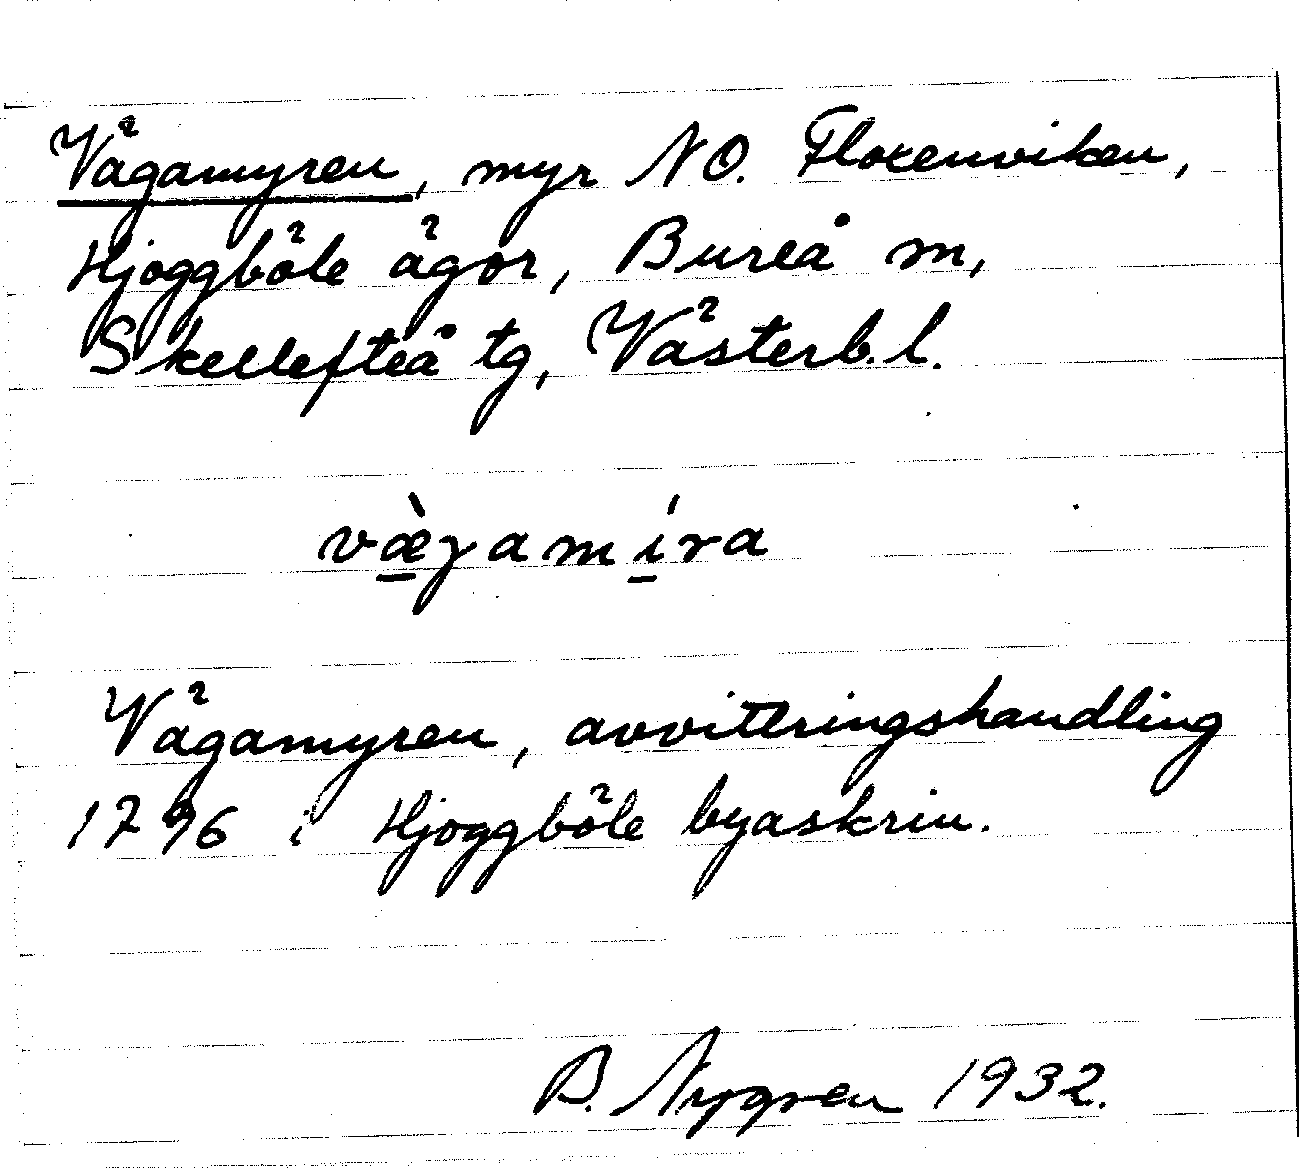 Vägamyren, myr NO. Floxenviken,
Hjoggböle ägor, Bureå m,
Skellefteå tg, Västerb. l.
væ̀gamíra
Vägamyren, avvittringshandling
1796 i Hjoggböle byaskrin.
B. Nygren 1932.